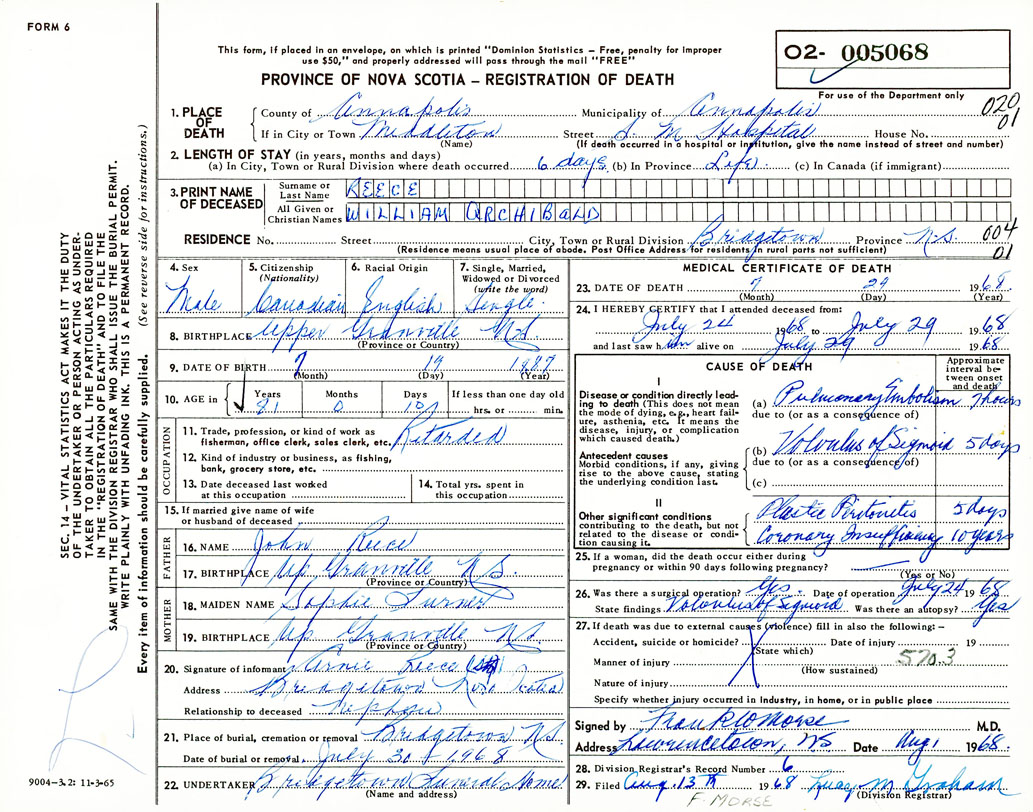 FORM 6
This form, if placed in an envelope, on which is printed "Dominion Statistics – Free, penalty for improper
use $50," and properly addressed will pass through the mail "FREE"
PROVINCE OF NOVA SCOTIA – REGISTRATION OF DEATH
O2- 005068
For use of the Department only
020
01
1. PLACE OF DEATH
County of Annapolis Municipality of Annapolis
If in City or Town Middleton Street S. M. Hospital House No.
(Name) (If death occurred in a hospital or institution, give the name instead of street and number)
2. LENGTH OF STAY (in years, months and days)
(a) In City, Town or Rural Division where death occurred 6 days (b) In Province Life (c) In Canada (if immigrant)
3. PRINT NAME OF DECEASED
Surname or Last Name REECE
All Given or Christian Names WILLIAM ARCHIBALD
RESIDENCE No. Street City, Town or Rural Division Bridgetown Province N.S. 004
01
(Residence means usual place of abode. Post Office Address for residents in rural parts not sufficient)
4. Sex Male
5. Citizenship (Nationality) Canadian
6. Racial Origin English
7. Single, Married, Widowed or Divorced (write the word) Single
8. BIRTHPLACE Upper Granville N.S.
(Province or Country)
9. DATE OF BIRTH 7 19 1887
(Month) (Day) (Year)
10. AGE in Years 81 Months 0 Days 10 If less than one day old hrs. or min.
OCCUPATION
11. Trade, profession, or kind of work as
fisherman, office clerk, sales clerk, etc. Retarded
12. Kind of industry or business, as fishing,
bank, grocery store, etc.
13. Date deceased last worked
at this occupation
14. Total yrs. spent in
this occupation
15. If married give name of wife
or husband of deceased
FATHER
16. NAME John Reece
17. BIRTHPLACE Up Granville N.S.
(Province or Country)
MOTHER
18. MAIDEN NAME Sophie Turner
19. BIRTHPLACE Up Granville N.S.
(Province or Country)
20. Signature of informant Arnie Reece
Address Bridgetown Nova Scotia
Relationship to deceased nephew
21. Place of burial, cremation or removal Bridgetown N.S.
Date of burial or removal July 30 1968
22. UNDERTAKER Bridgetown Funeral Home
(Name and address)
MEDICAL CERTIFICATE OF DEATH
23. DATE OF DEATH 7 29 1968
(Month) (Day) (Year)
24. I HEREBY CERTIFY that I attended deceased from:
July 24 1968 to July 29 1968
and last saw him alive on July 29 1968
CAUSE OF DEATH
Approximate interval between onset and death
I
Disease or condition directly leading to death (This does not mean the mode of dying, e.g., heart failure, asthenia, etc. It means the disease, injury, or complication which caused death.)
(a) Pulmonary Embolism 7 hours
due to (or as a consequence of)
Antecedent causes
Morbid conditions, if any, giving rise to the above cause, stating the underlying condition last.
(b) Volvulus of Sigmoid 5 days
due to (or as a consequence of)
(c)
II
Other significant conditions
contributing to the death, but not related to the disease or condition causing it.
Plastic Peritonitis 5 days
Coronary Insufficiency 10 years
25. If a woman, did the death occur either during
pregnancy or within 90 days following pregnancy?
(Yes or No)
26. Was there a surgical operation? Yes Date of operation July 24 1968
State findings Volvulus of Sigmoid Was there an autopsy? Yes
27. If death was due to external causes (violence) fill in also the following: –
Accident, suicide or homicide? Date of injury 19
(State which)
Manner of injury 570.3
(How sustained)
Nature of injury
Specify whether injury occurred in industry, in home, or in public place
Signed by Frank W Morse M.D.
Address Lawrencetown, NS Date Aug 1 1968.
28. Division Registrar's Record Number 6
29. Filed Aug. 13th 1968 Lucy M Graham
(Division Registrar)
F. MORSE
SEC. 14 – VITAL STATISTICS ACT MAKES IT THE DUTY
OF THE UNDERTAKER OR PERSON ACTING AS UNDER-
TAKER TO OBTAIN ALL THE PARTICULARS REQUIRED
IN THE "REGISTRATION OF DEATH" AND TO FILE THE
SAME WITH THE DIVISION REGISTRAR WHO SHALL ISSUE THE BURIAL PERMIT.
WRITE PLAINLY WITH UNFADING INK. THIS IS A PERMANENT RECORD.
Every item of information should be carefully supplied. (See reverse side for instructions.)
9004-3.2: 11-3-65